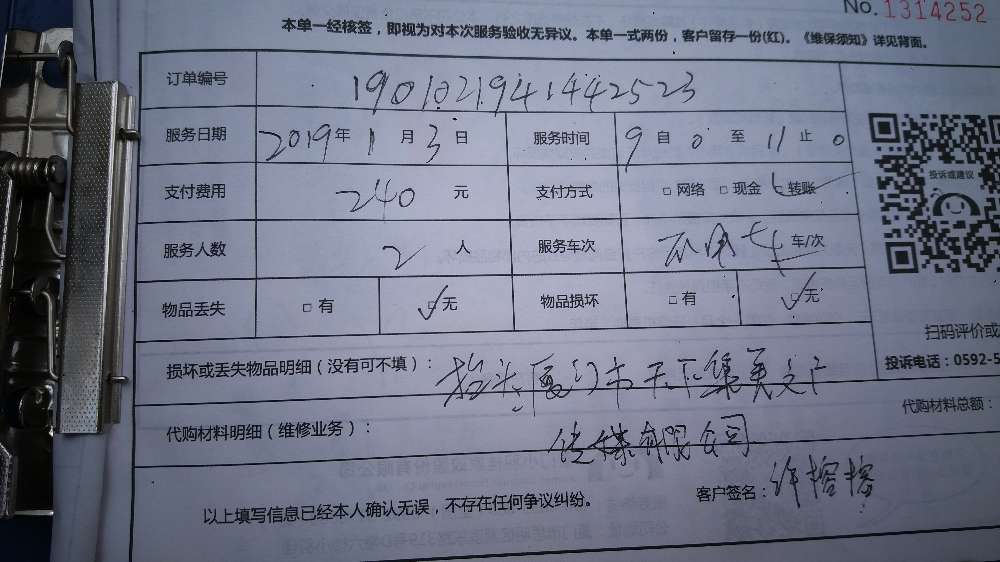 No.1314252
本单一经核签，即视为对本次服务验收无异议。本单一式两份，客户留存一份(红)。《维保须知》详见背面。
订单编号 1901021941442523
服务日期 2019年1月3日 服务时间 9自0至11止0
支付费用 240元 支付方式 □网络 □现金 转账
投诉或建议
服务人数 2人 服务车次 不用车 车/次
物品丢失 □有 ☑无 物品损坏 □有 ☑无
扫码评价或
损坏或丢失物品明细（没有可不填）： 抬头：厦门市天下集美文广
投诉电话：0592-5
代购材料明细（维修业务）： 传媒有限公司
代购材料总额：
以上填写信息已经本人确认无误，不存在任何争议纠纷。 客户签名：许榕榕